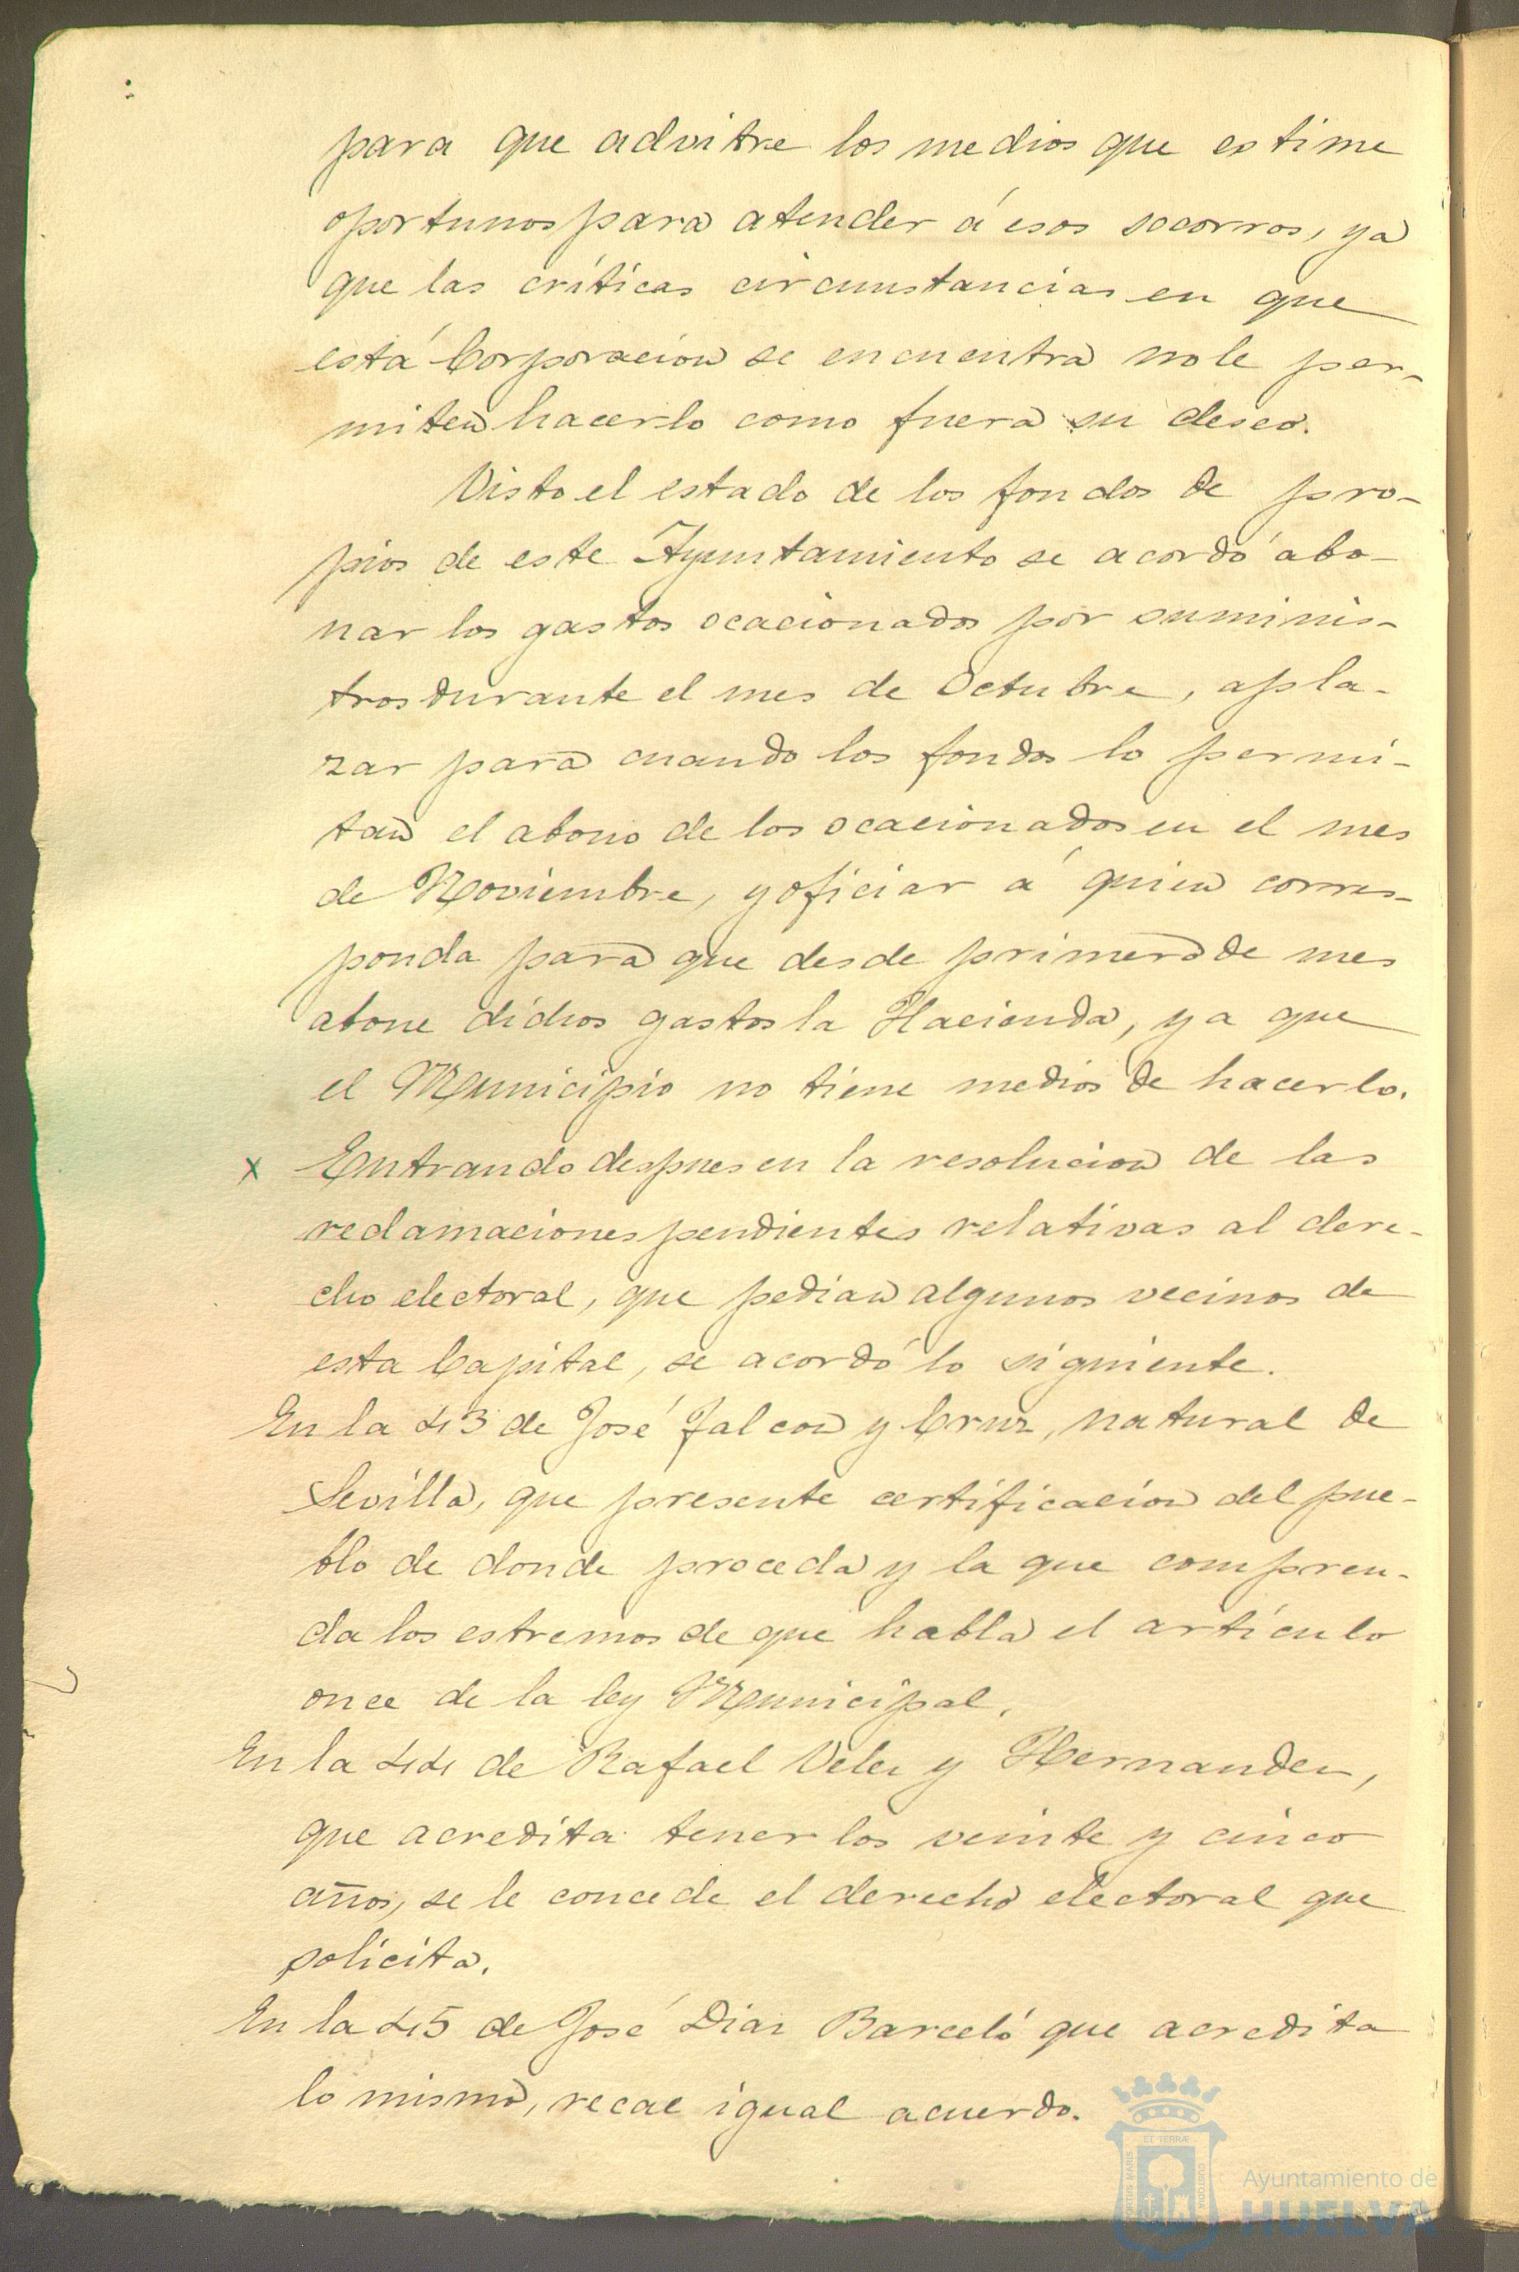 para que advitre los medios que estime
oportunos para atender á esos socorros, ya
que las críticas circunstancias en que
está Corporacion se encuentra no le per-
miten hacerlo como fuera su deseo.
Visto el estado de los fondos de pro-
pios de este Ayuntamiento se acordó abo-
nar los gastos ocacionados por suminis-
tros durante el mes de Octubre, apla-
zar para cuando los fondos lo permi-
tan el abono de los ocacionados en el mes
de Noviembre, y oficiar á quien corres-
ponda para que desde primero de mes
abone dichos gastos la Hacienda, ya que
el Municipio no tiene medios de hacerlo.
x Entrando despues en la resolucion de las
reclamaciones pendientes relativas al dere-
cho electoral, que pedian algunos vecinos de
esta Capital, se acordó lo siguiente.
En la 43 de José Falcon y Cruz, natural de
Sevilla, que presente certificacion del pue-
blo de donde proceda y la que compren-
da los estremos de que habla el artículo
once de la ley Municipal.
En la 44 de Rafael Velez y Hernandez,
que acredita tener los veinte y cinco
años, se le concede el derecho electoral que
solicita.
En la 45 de José Diaz Barceló que acredita
lo mismo, recae igual acuerdo.
Ayuntamiento de
HUELVA